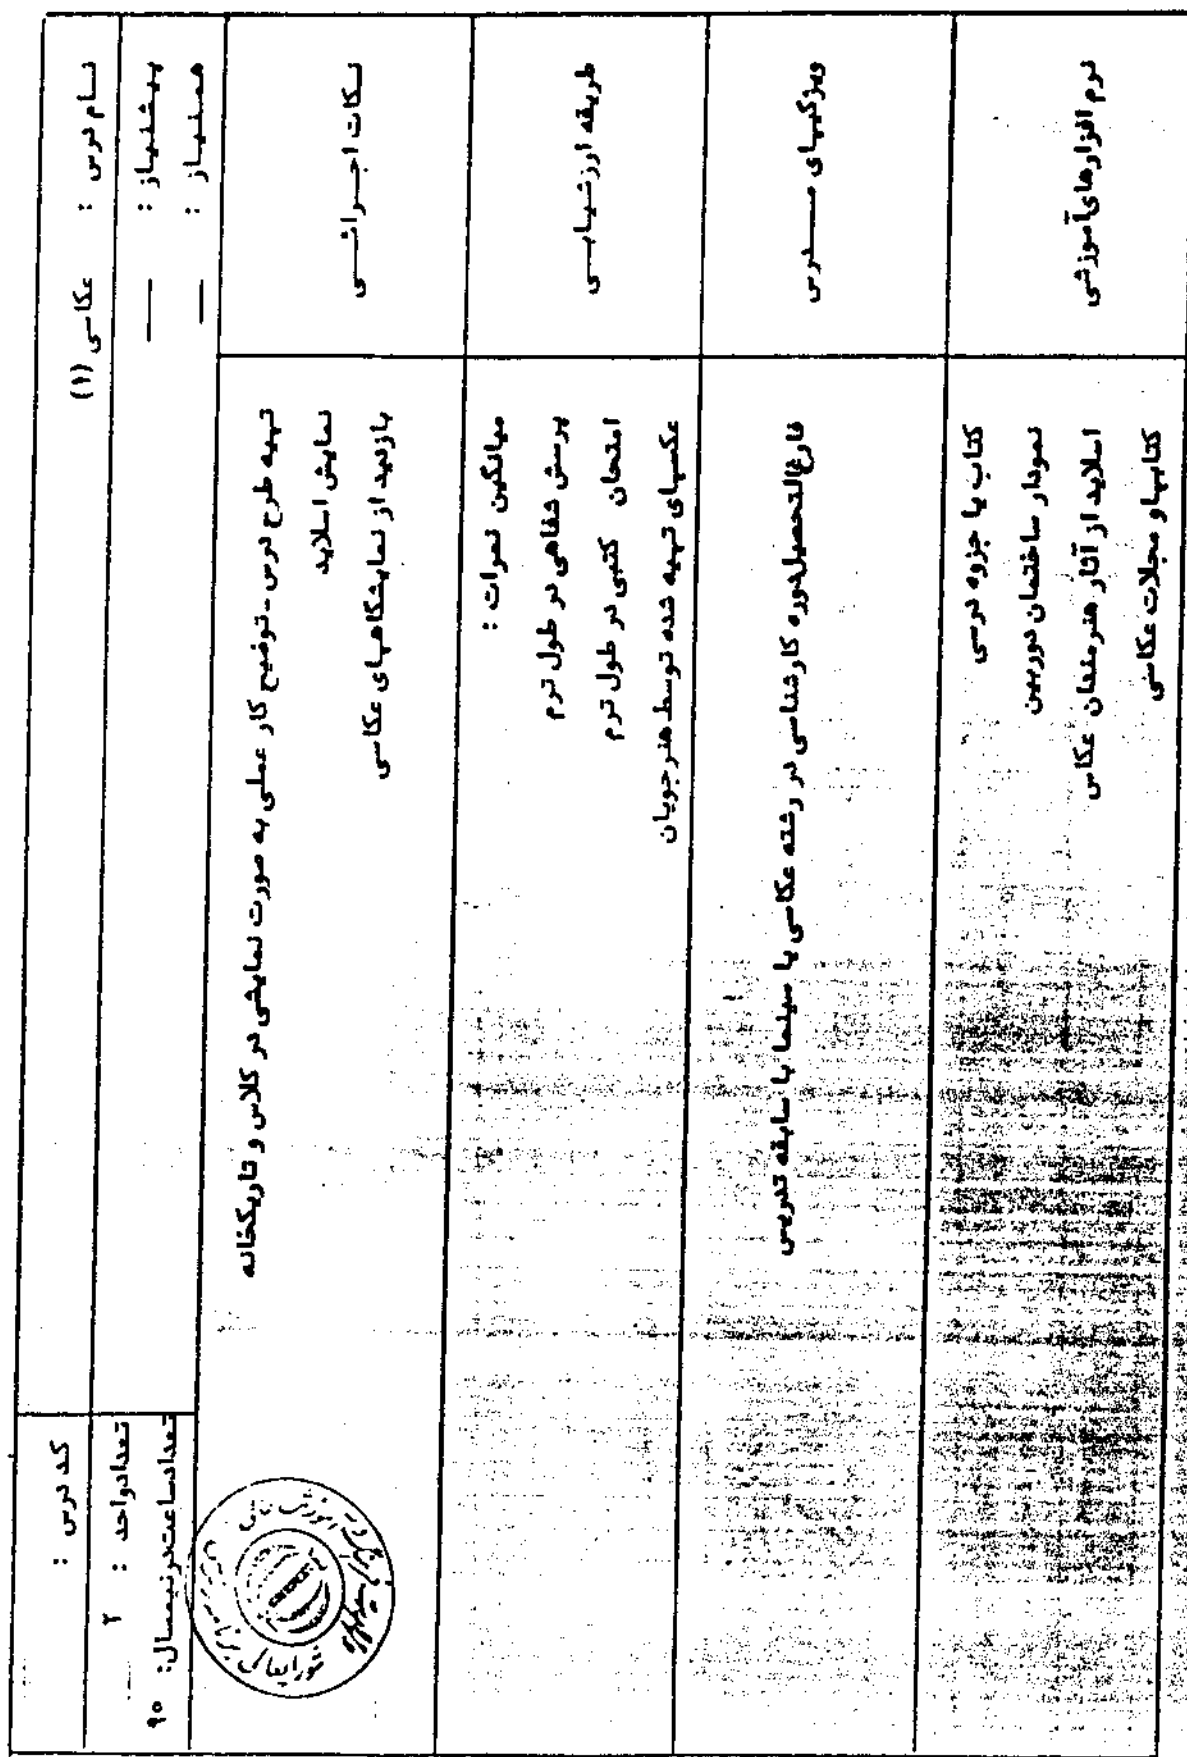 نام درس : عکاسی (۱)
کد درس :
پیشنیاز : —
تعداد واحد : ۲
همنیاز : —
تعداد ساعت در نیمسال: ۹۰
نکات اجرائی
تهیه طرح درس - توضیح کار عملی به صورت نمایشی در کلاس و تاریکخانه
نمایش اسلاید
بازدید از نمایشگاههای عکاسی
طریقه ارزشیابی
میانگین نمرات :
پرسش شفاهی در طول ترم
امتحان کتبی در طول ترم
عکسهای تهیه شده توسط هنرجویان
ویژگیهای مدرس
فارغ‌التحصیل دوره کارشناسی در رشته عکاسی یا سینما با سابقه تدریس
نرم افزارهای آموزشی
کتاب یا جزوه درسی
نمودار ساختمان دوربین
اسلاید از آثار هنرمندان عکاس
کتابها و مجلات عکاسی